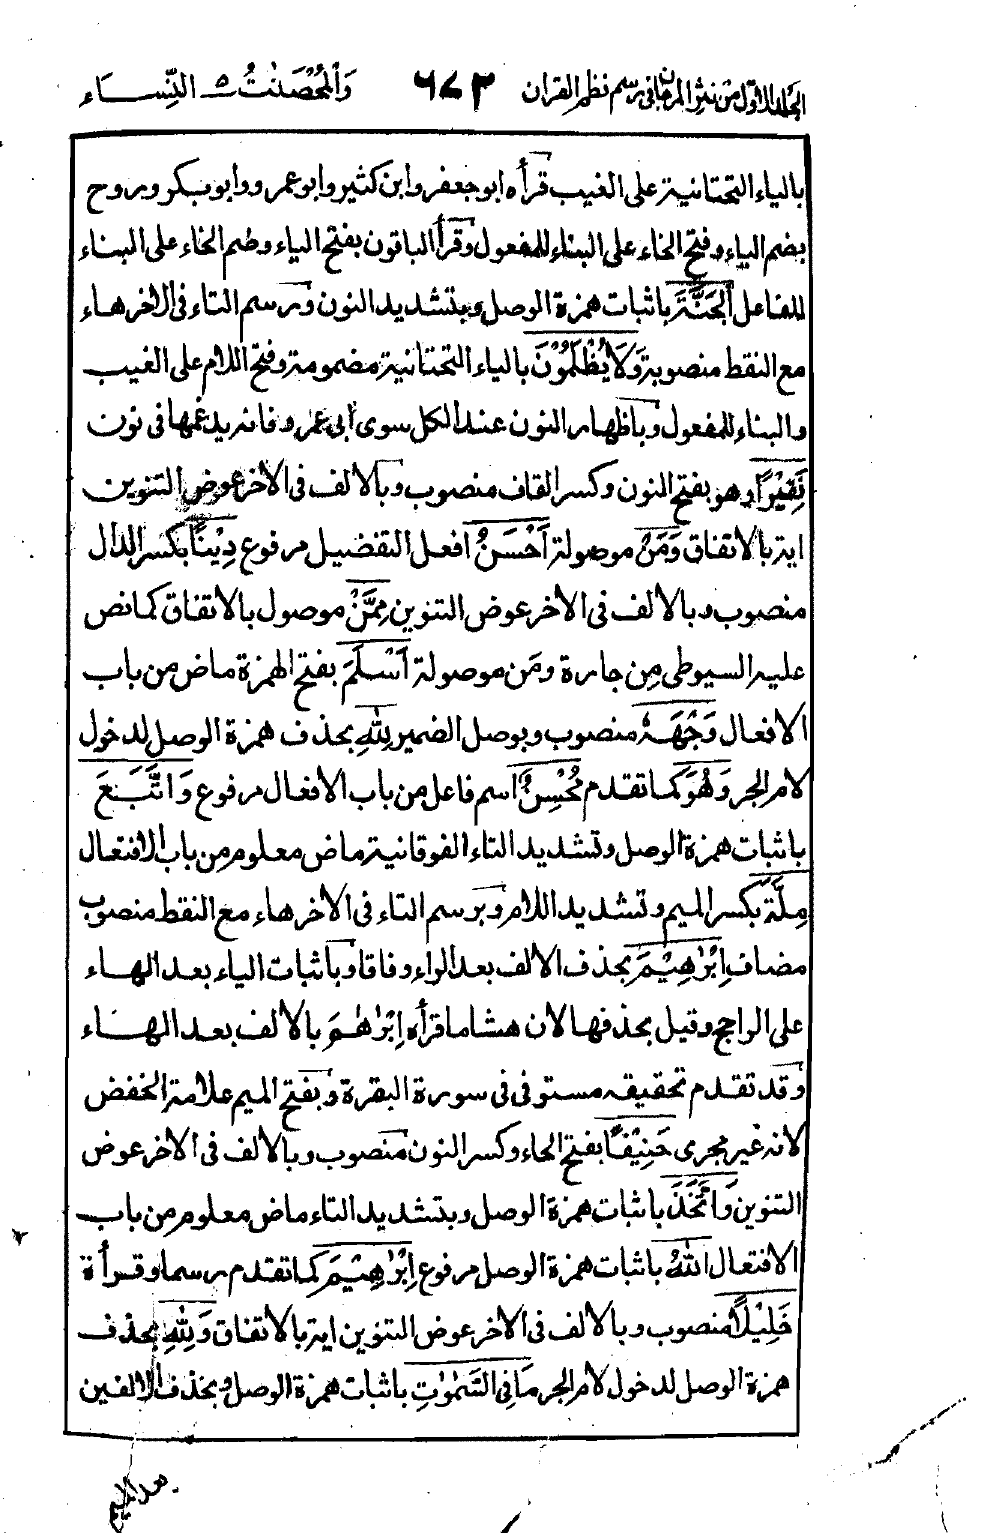 الجلد الاول من نثر المرجان فى رسم نظم القران ٦٧٣ وَالْمُحْصَنٰتُ ٥ النِّسَاء
بالياء التحتانية على الغيب قرأه ابوجعفر وابن كثير وابو عمرو وابوبكر وروح
بضم الياء وفتح الخاء على البناء للمفعول وقرأ الباقون بفتح الياء وضم الخاء على البناء
للفاعل الْجَنَّةَ باثبات همزة الوصل وبتشديد النون وبرسم التاء فى الاخر هاء
مع النقط منصوبة وَلَا يُظْلَمُوْنَ بالياء التحتانية مضمومة وفتح اللام على الغيب
والبناء للمفعول وباظهار النون عند الكل سوى ابى عمرو فانه يدغمها فى نون
نَقِيْرًا وهو بفتح النون وكسر القاف منصوب وبالالف فى الاخر عوض التنوين
اية بالاتفاق وَمَنْ موصولة اَحْسَنُ افعل التفضيل مرفوع دِيْنًا بكسر الدال
منصوب وبالالف فى الاخر عوض التنوين مِمَّنْ موصول بالاتفاق كما نص
عليه السيوطى مِن جارة ومَن موصولة اَسْلَمَ بفتح الهمزة ماض من باب
الافعال وَجْهَهٗ منصوب وبوصل الضمير لِلّٰهِ بحذف همزة الوصل لدخول
لام الجر وَهُوَ كما تقدم مُحْسِنٌ اسم فاعل من باب الافعال مرفوع وَاتَّبَعَ
باثبات همزة الوصل وتشديد التاء الفوقانية ماض معلوم من باب الافتعال
مِلَّةَ بكسر الميم وتشديد اللام وبرسم التاء فى الاخر هاء مع النقط منصوب
مضاف اِبْرٰهِيْمَ بحذف الالف بعد الراء وفاقا وباثبات الياء بعد الهاء
على الراجح وقيل بحذفها لان هشاما قرأه اِبْرٰهٰمَ بالالف بعد الهاء
وقد تقدم تحقيقه مستوفى فى سورة البقرة وبفتح الميم علامة الخفض
لانه غير مجرى حَنِيْفًا بفتح الحاء وكسر النون منصوب وبالالف فى الاخر عوض
التنوين وَاتَّخَذَ باثبات همزة الوصل وبتشديد التاء ماض معلوم من باب
الافتعال اللّٰهُ باثبات همزة الوصل مرفوع اِبْرٰهِيْمَ كما تقدم رسما وقرأة
خَلِيْلًا منصوب وبالالف فى الاخر عوض التنوين اية بالاتفاق وَلِلّٰهِ بحذف
همزة الوصل لدخول لام الجر مَا فِى السَّمٰوٰتِ باثبات همزة الوصل وبحذف الالفين
بعد الميم